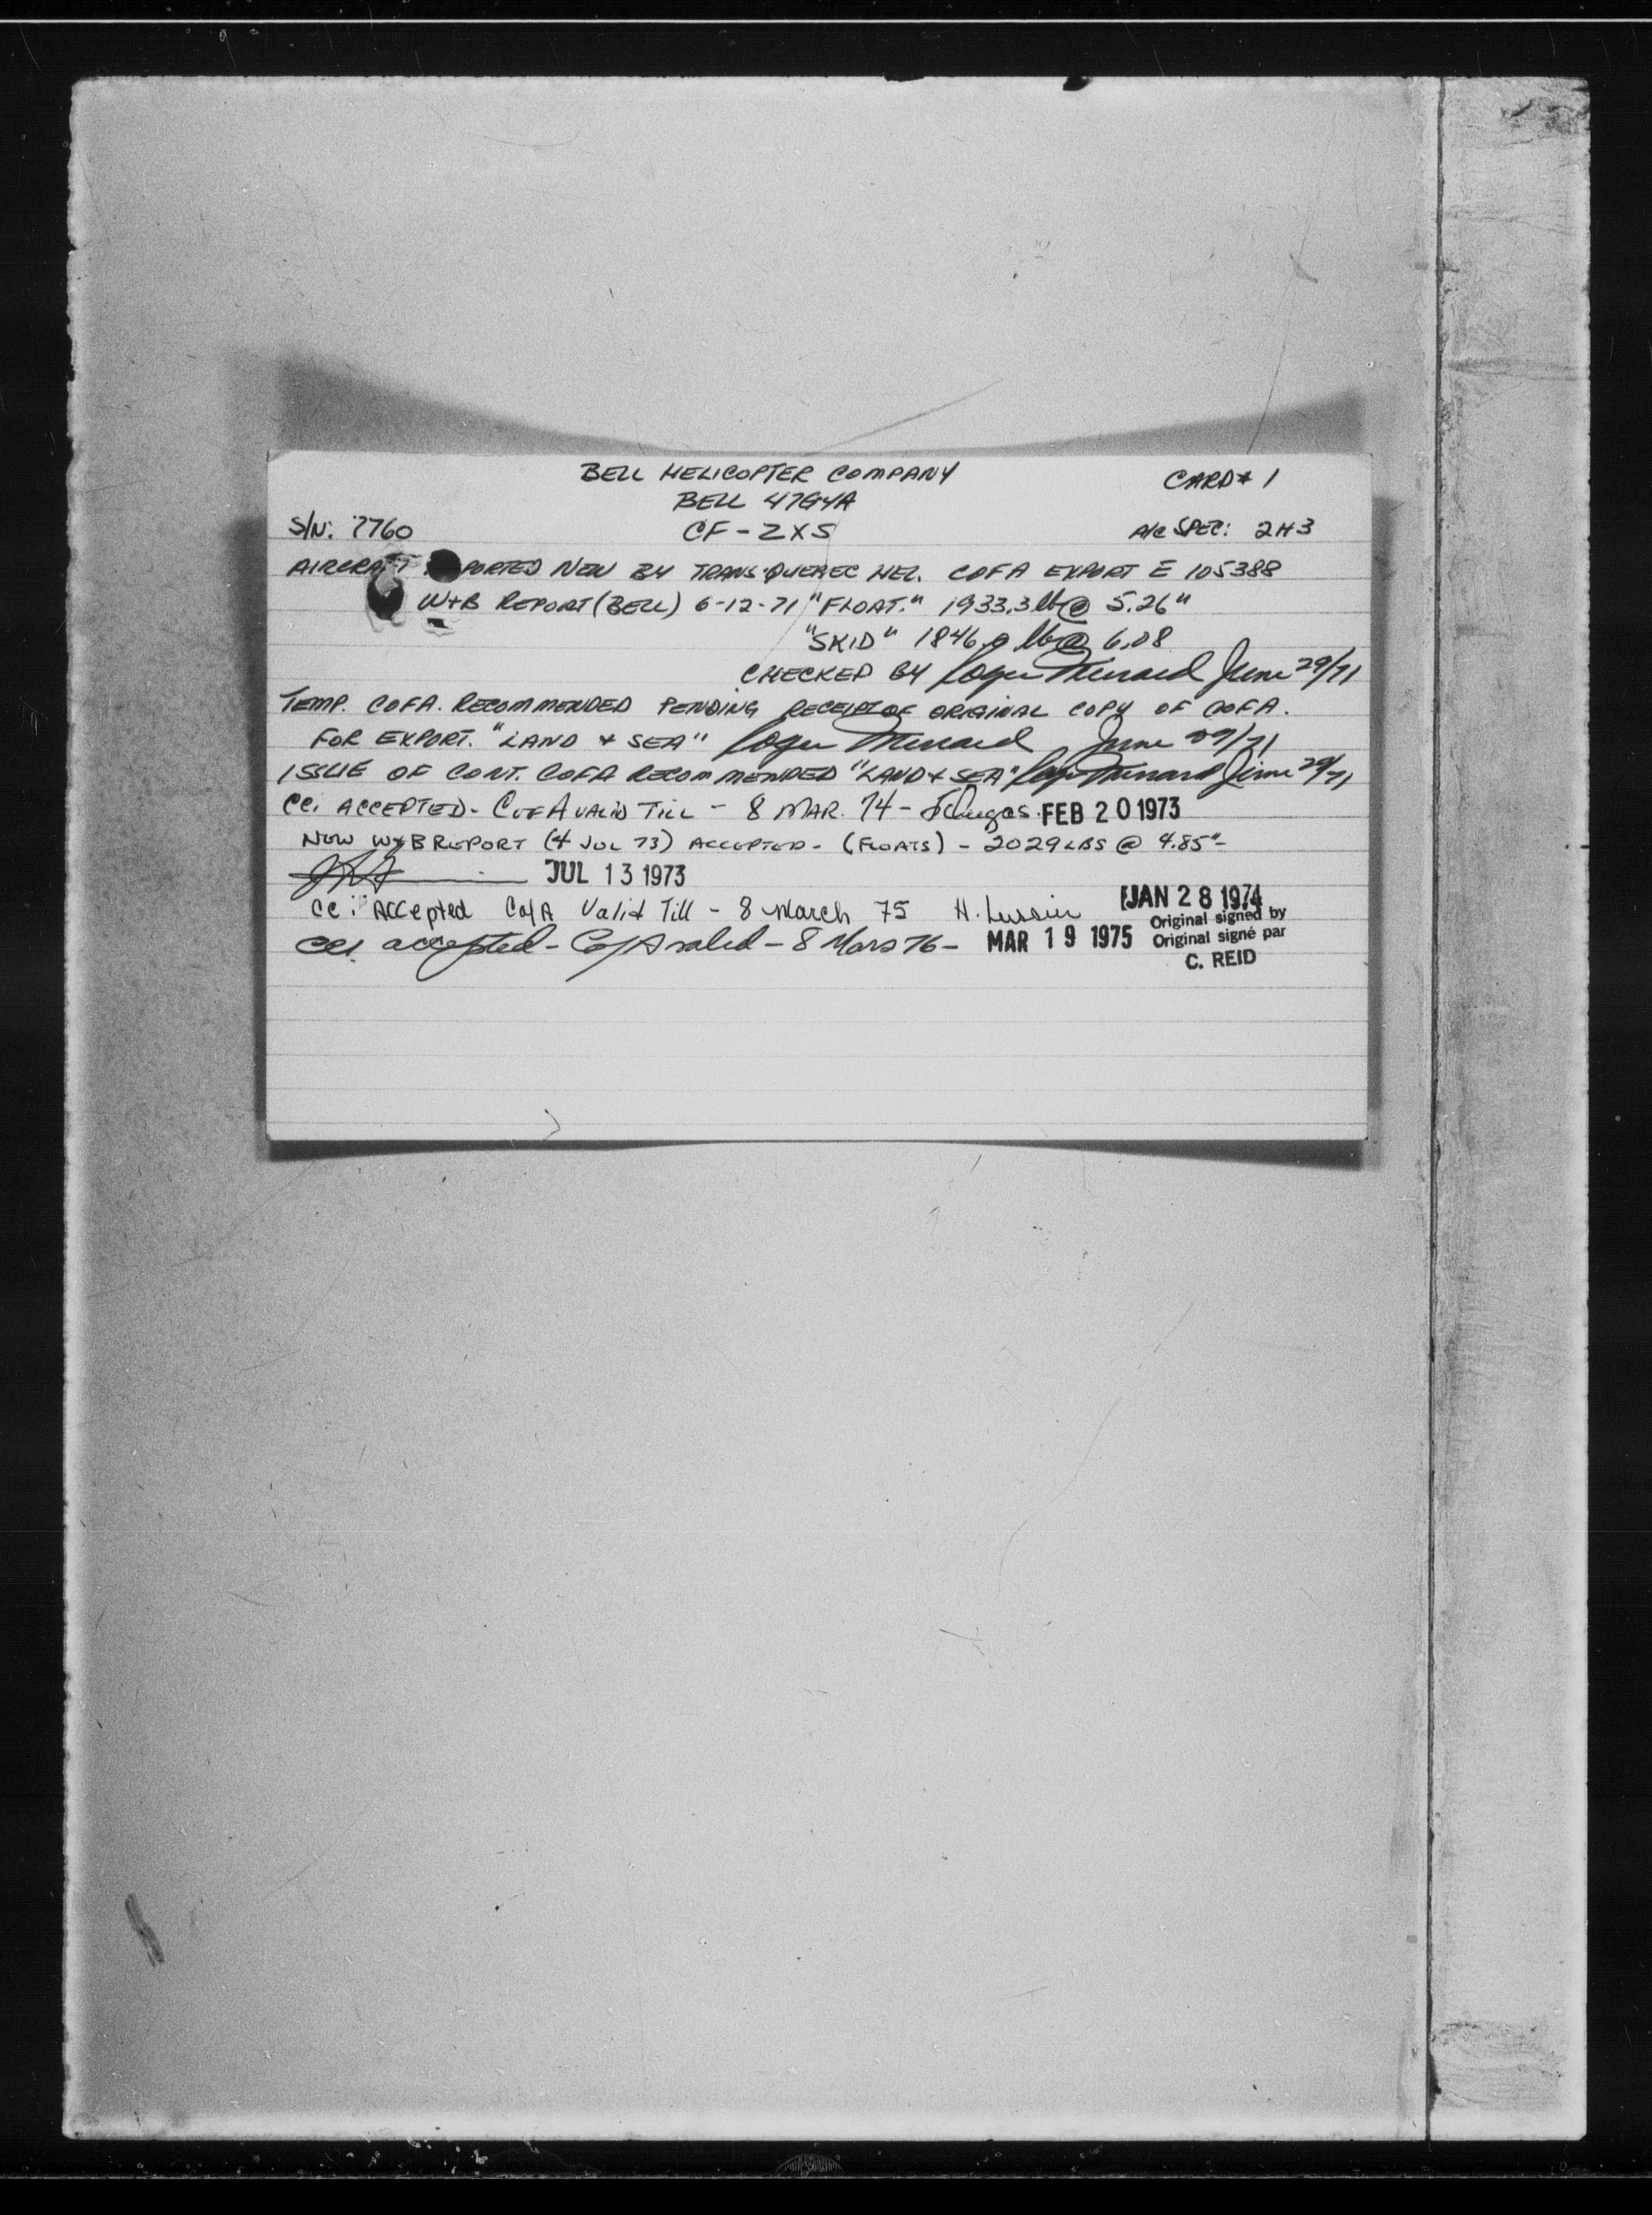 BELL HELICOPTER COMPANY CARD # 1
BELL 47G4A
S/N: 7760 CF-ZXS A/C SPEC: 2H3
AIRCRAFT PORTED NEW BY TRANS-QUEBEC HEL. COFA EXPORT E 105388
W+B REPORT (BELL) 6-12-71 "FLOAT." 1933.3 lb @ 5.26"
"SKID" 1846.9 lb @ 6.08
CHECKED BY Roger Menard June 29/71
TEMP. COFA. RECOMMENDED PENDING RECEIPT OF ORIGINAL COPY OF COFA.
FOR EXPORT. "LAND & SEA" Roger Menard June 29/71
ISSUE OF CONT. COFA RECOMMENDED "LAND & SEA" Roger Menard June 29/71
CCI ACCEPTED - C OF A VALID TILL - 8 MAR. 74 - FEB 20 1973
NEW W&B REPORT (4 JUL 73) ACCEPTED - (FLOATS) - 2029 LBS @ 4.85" -
JUL 13 1973
CCI Accepted CofA Valid Till - 8 March 75 H. Lussier JAN 28 1974
CCI accepted - C of A valid - 8 Mars 76 - MAR 19 1975
Original signed by
Original signé par
C. REID